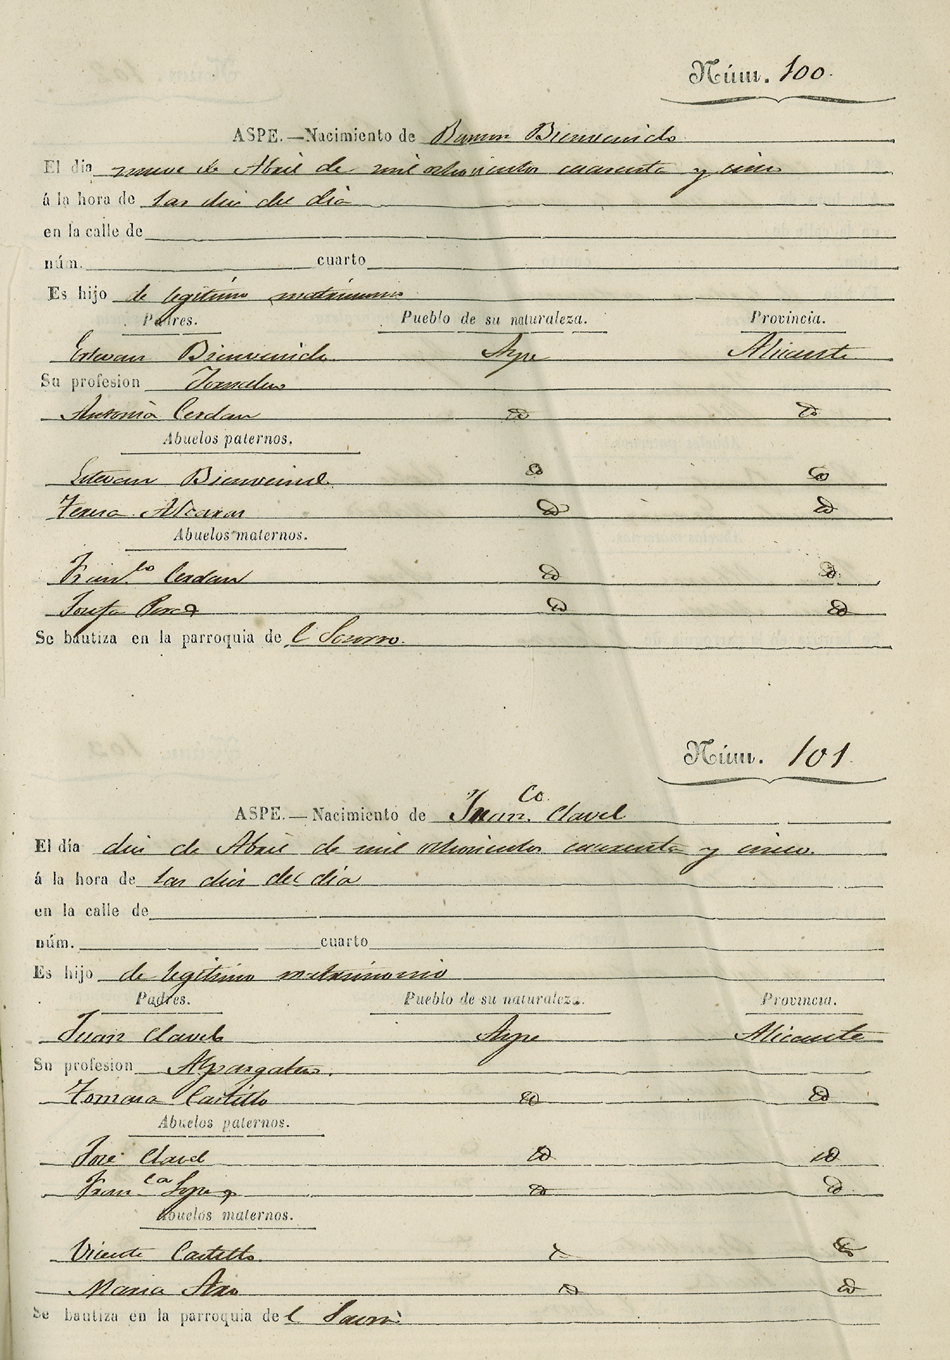 Núm. 100.
ASPE.—Nacimiento de Ramon Bienvenido
El día nueve de Abril de mil ochocientos cuarenta y cinco
á la hora de las dies del dia
en la calle de
núm. cuarto
Es hijo de legitimo matrimonio
Padres. Pueblo de su naturaleza. Provincia.
Estevan Bienvenido Aspe Alicante
Su profesion Jornalero
Antonia Cerdan id id
Abuelos paternos.
Estevan Bienvenido id id
Teresa Alcaraz id id
Abuelos maternos.
Fran.co Cerdan id id
Josefa id id
Se bautiza en la parroquia de l Socorro.
Núm. 101
ASPE.—Nacimiento de Fran.co Clavel
El día dies de Abril de mil ochocientos cuarenta y cinco.
á la hora de las dies del dia
en la calle de
núm. cuarto
Es hijo de legitimo matrimonio
Padres. Pueblo de su naturaleza. Provincia.
Juan Clavel Aspe Alicante
Su profesion Alpargatero.
Tomasa Castillo id id
Abuelos paternos.
José Clavel id id
Fran.ca id id
Abuelos maternos.
Vicente Castillo id
Maria id id
Se bautiza en la parroquia de l